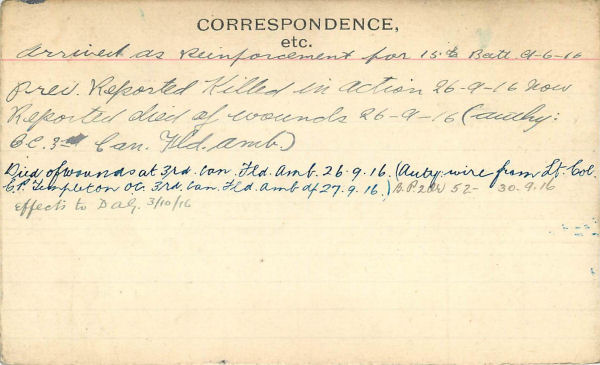 CORRESPONDENCE,
etc.
Arrived as Reinforcement for 15th Batt. 9-6-16
Prev. Reported Killed in action 26-9-16 now
Reported died of wounds 26-9-16 (authy:
O.C. 3rd Can. Fld. Amb.)
Died of wounds at 3rd. Can. Fld. Amb. 26.9.16. (Auty: wire from Lt. Col.
C.P. Templeton OC. 3rd. Can. Fld. Amb df 27.9.16.) 52- 30.9.16
Effects to D.A.G. 3/10/16